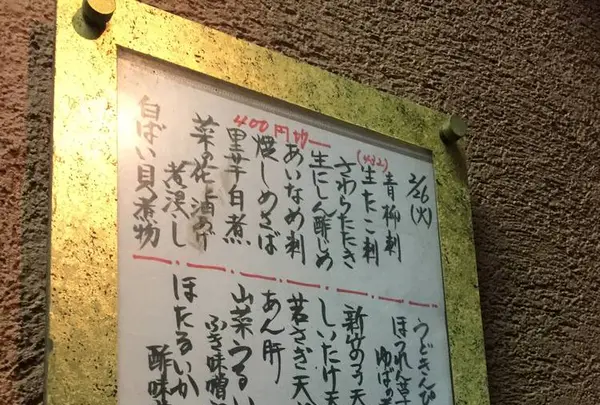 2/26(火)
青柳刺
(432)
生たこ刺
さわらたたき
生にしん酢じめ
あいなめ刺
400円均一
燻しめさば
里芋白煮
菜の花油あげ
煮浸し
白ばい貝煮物
うどきんぴ
ほうれん草
ゆばの
新竹の子天
しいたけ天
若さぎ天
あん肝
山菜うるい
ふき味噌
ほたるいか
酢味